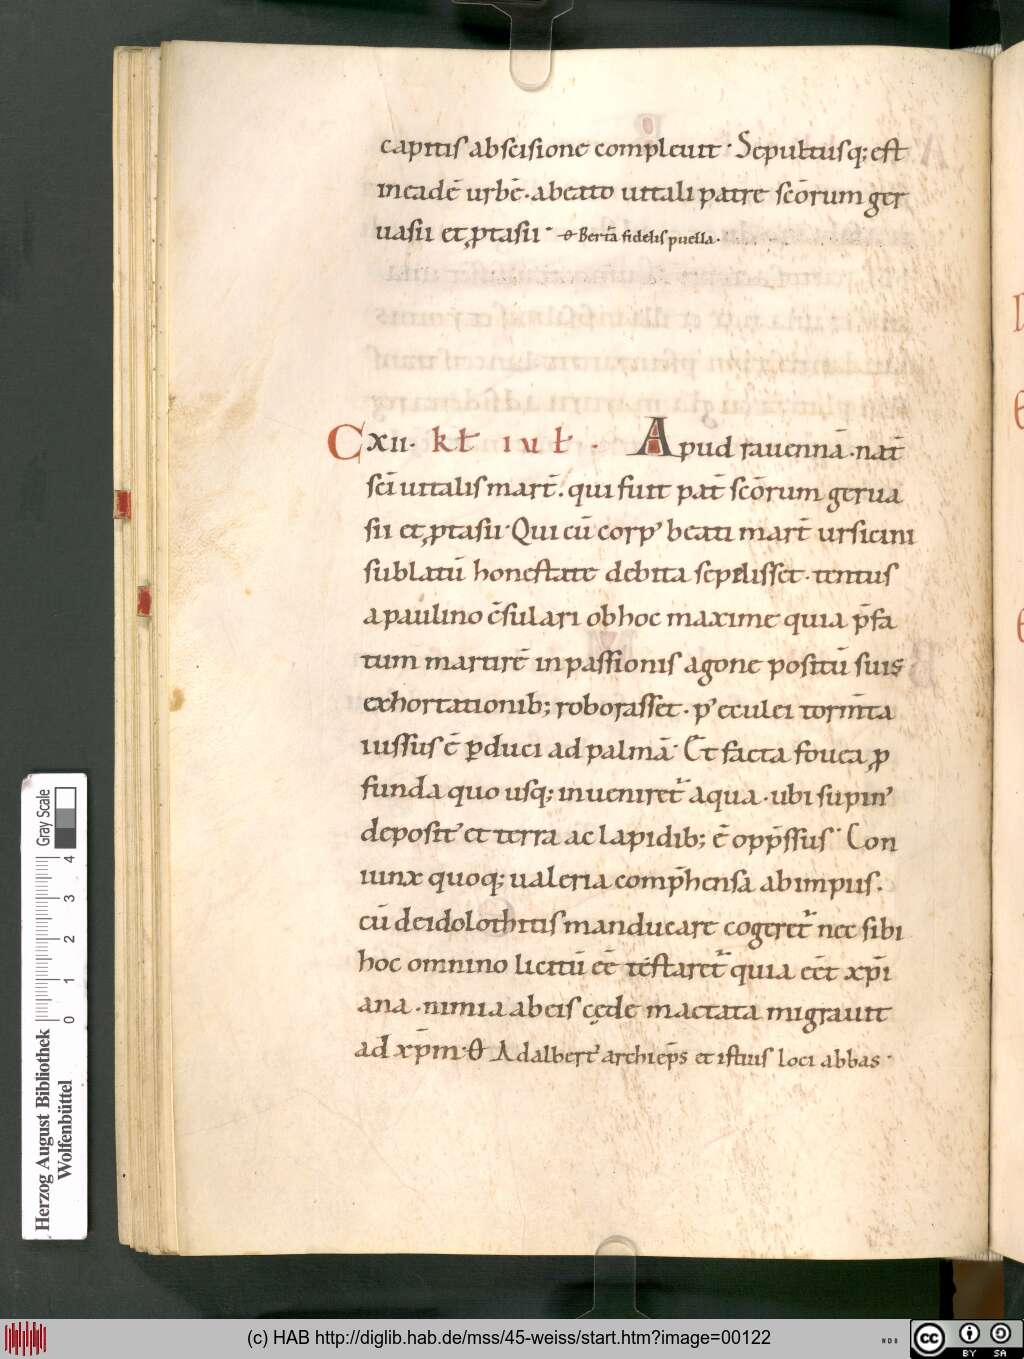 capitis abscisione compleuit· Sepultusq; est
in eadē urbē· a beato uitali patre scōrum ger
uasii et ꝓtasii· ꝋ Bertā fidelis puella·
C xii· kł iuł · Apud rauennā· nat̄
sc̄i uitalis mart̄· qui fuit pat̄ scōrum gerua
sii et ꝓtasii· Qui cū corp' beati mart̄ ursicini
sublatū honestate debita sepelisset· tentus
a paulino c̄sulari ob hoc maxime quia p̄fa
tum martirē in passionis agone positū suis
exhortationib; roborasset· p' eculei torm̄ta
iussus ē ꝑduci ad palmā· Et facta fouea ꝓ
funda quo usq; inueniret᷑ aqua· ubi supin'
deposit' et terra ac lapidib; ē opp̄ssus· Con
iunx quoq; ualeria comp̄hensa ab impiis·
cū de idolothitis manducare cogeret᷑ nec sibi
hoc omnino licitū eē testaret᷑ quia eēt xp̄i
ana· nimia ab eis cęde mactata migrauit
ad xp̄m· ꝋ Adalbert' archiep̄s et istius loci abbas·
Herzog August Bibliothek
Wolfenbüttel
0 1 2 3 4
Gray Scale
(c) HAB http://diglib.hab.de/mss/45-weiss/start.htm?image=00122
WDB
cc BY SA